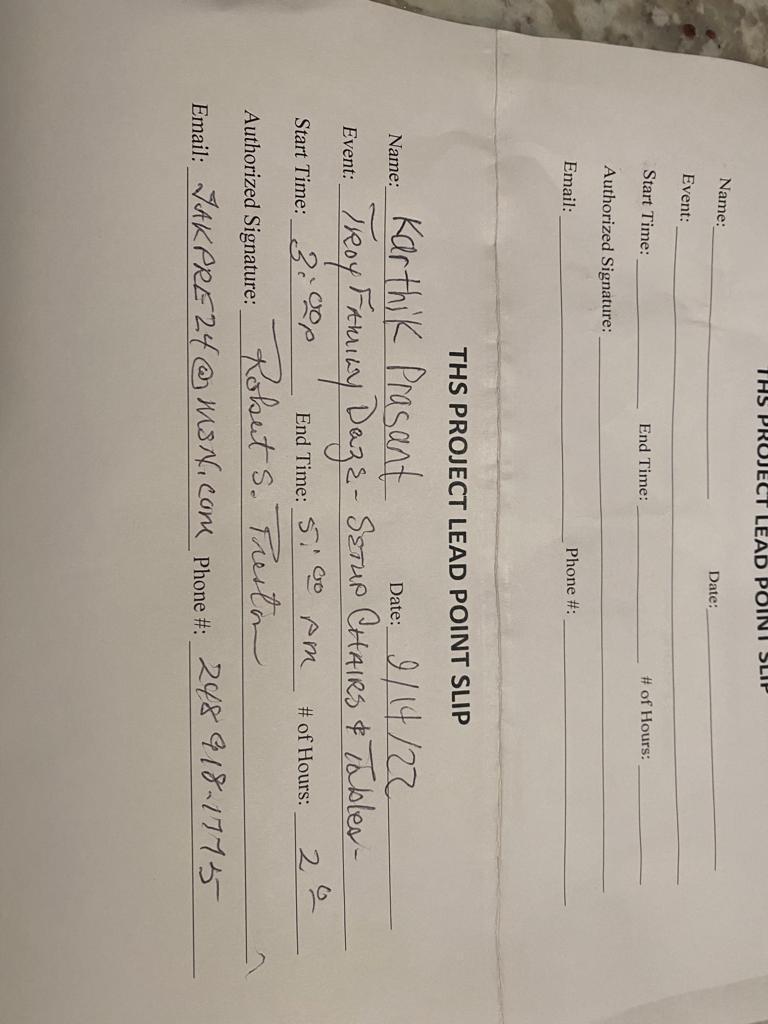 THS PROJECT LEAD POINT SLIP
Name: Date:
Event:
Start Time: End Time: # of Hours:
Authorized Signature:
Email: Phone #:
THS PROJECT LEAD POINT SLIP
Name: Karthik Prasant Date: 9/14/22
Event: TROY FAMILY Daze - SETUP CHAIRS & Tables-
Start Time: 3:00p End Time: 5:00 pm # of Hours: 2
Authorized Signature: Robert S.
Email: JAKPRE24@msn.com Phone #: 248 918-1775